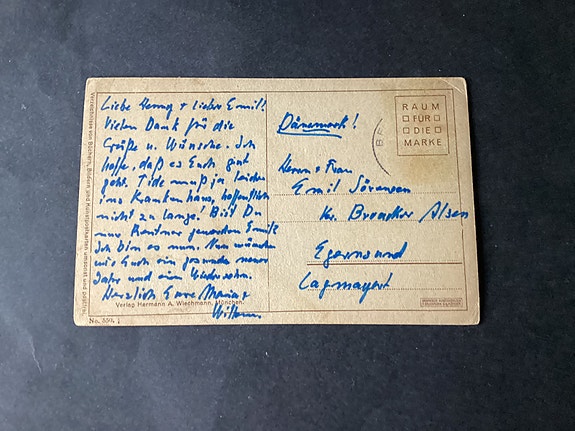 Liebe Henny + lieber Emil!
Vielen Dank für die
Grüße u. Wünsche. Ich
hoffe, daß es Euch gut
geht. Tide muß ja leider
ins Krankenhaus, hoffentlich
nicht zu lange! Bist Du
nun Rentner geworden Emil?
Ich bin es nun. Nun wünschen
wir Euch ein gesundes neues
Jahr und ein Wiedersehn.
Herzlich Eure Maria +
Willem
Dänemark!
Herrn + Frau
Emil Sörensen
Kr. Broacker Alsen
Egernsund
RAUM
FÜR
DIE
MARKE
Verlag Hermann A. Wiechmann, München.
No. 550,
Verzeichnisse von Büchern, Bildern und Kunstpostkarten umsonst und postfrei.